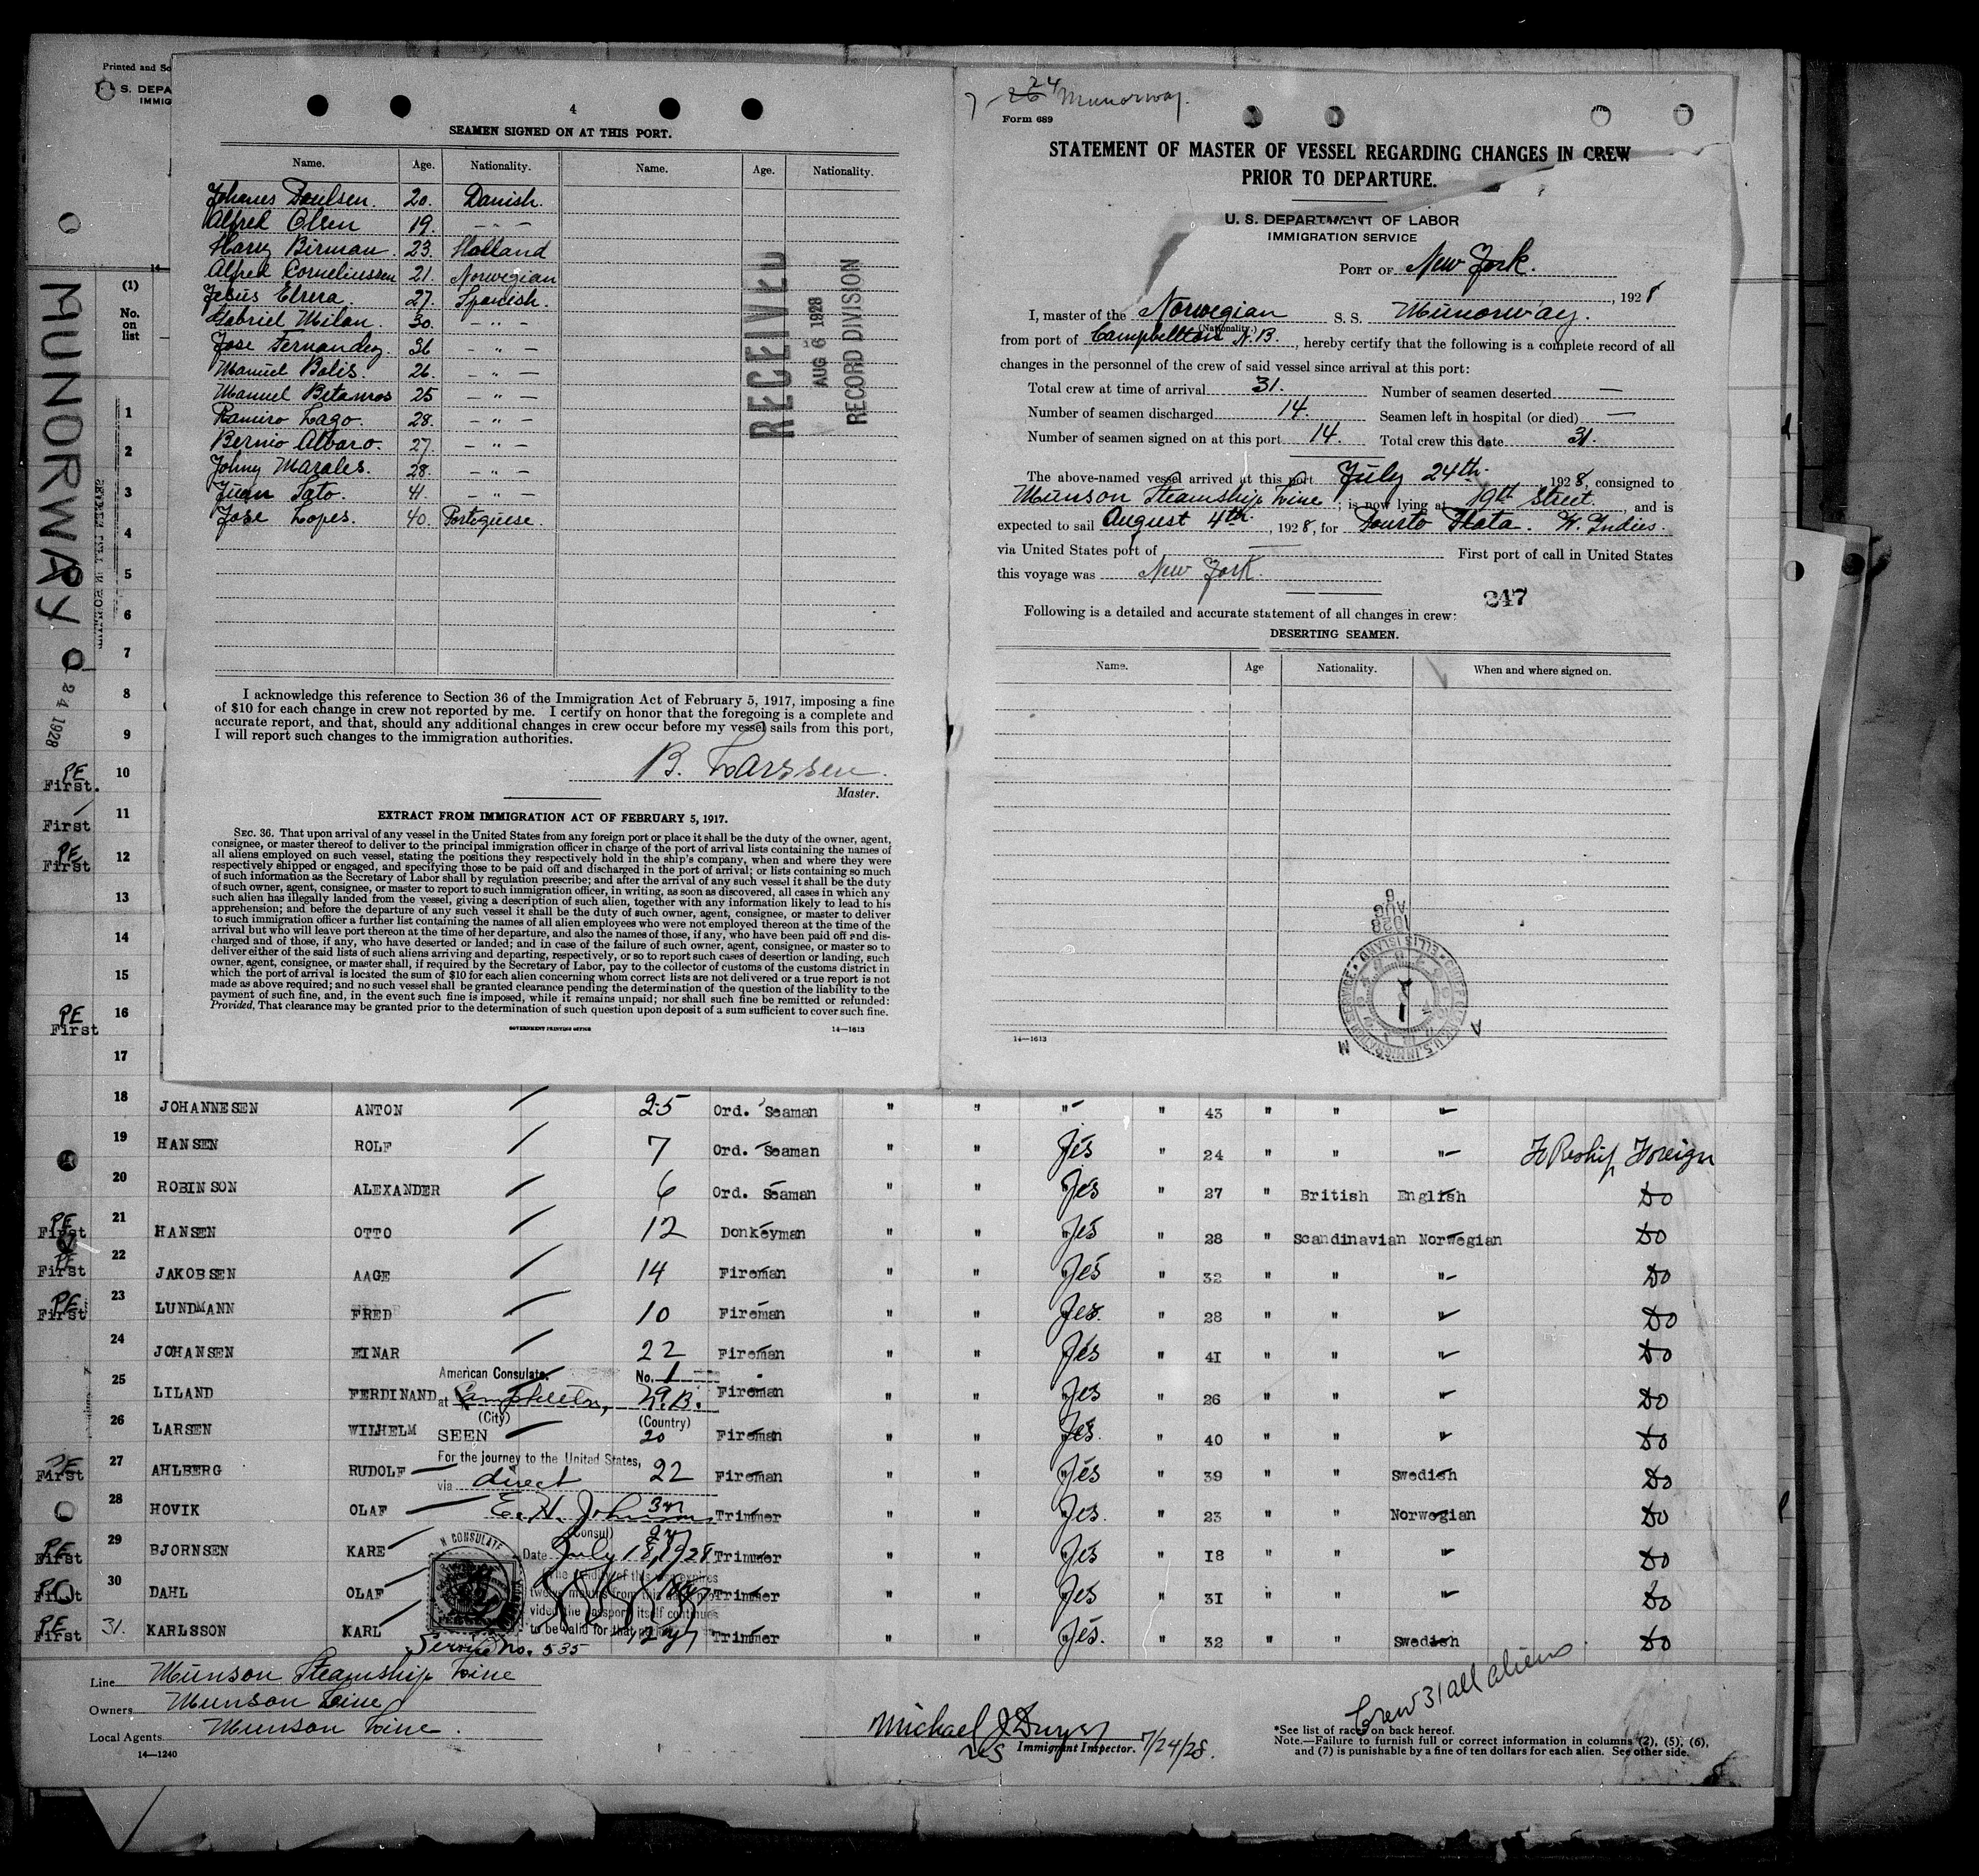 Printed and So
S. DEPA
IMMIG
4
SEAMEN SIGNED ON AT THIS PORT.
Name. Age. Nationality. Name. Age. Nationality.
Johanes Poulsen. 20. Danish.
Alfred Olsen 19. - " -
Harry Birman 23. Holland
Alfred Corneliussen 21. Norwegian
Jesus Elrera. 27. Spanish.
Gabriel Milan. 30. - " -
Jose Fernandez 36 - " -
Manuel Bolis. 26. - " -
Manuel Betamos 25 - " -
Ramiro Lago. 28. - " -
Bernio Albaro. 27. - " -
Johny Marales. 28. - " -
Juan Sato. 41. - " -
Jose Lopes. 40. Portegúese.
RECEIVED
AUG 6 1928
RECORD DIVISION
I acknowledge this reference to Section 36 of the Immigration Act of February 5, 1917, imposing a fine
of $10 for each change in crew not reported by me. I certify on honor that the foregoing is a complete and
accurate report, and that, should any additional changes in crew occur before my vessel sails from this port,
I will report such changes to the immigration authorities.
B. Larssen.
Master.
EXTRACT FROM IMMIGRATION ACT OF FEBRUARY 5, 1917.
SEC. 36. That upon arrival of any vessel in the United States from any foreign port or place it shall be the duty of the owner, agent,
consignee, or master thereof to deliver to the principal immigration officer in charge of the port of arrival lists containing the names of
all aliens employed on such vessel, stating the positions they respectively hold in the ship's company, when and where they were
respectively shipped or engaged, and specifying those to be paid off and discharged in the port of arrival; or lists containing so much
of such information as the Secretary of Labor shall by regulation prescribe; and after the arrival of any such vessel it shall be the duty
of such owner, agent, consignee, or master to report to such immigration officer, in writing, as soon as discovered, all cases in which any
such alien has illegally landed from the vessel, giving a description of such alien, together with any information likely to lead to his
apprehension; and before the departure of any such vessel it shall be the duty of such owner, agent, consignee, or master to deliver
to such immigration officer a further list containing the names of all alien employees who were not employed thereon at the time of the
arrival but who will leave port thereon at the time of her departure, and also the names of those, if any, who have been paid off and dis-
charged and of those, if any, who have deserted or landed; and in case of the failure of such owner, agent, consignee, or master so to
deliver either of the said lists of such aliens arriving and departing, respectively, or so to report such cases of desertion or landing, such
owner, agent, consignee, or master shall, if required by the Secretary of Labor, pay to the collector of customs of the customs district in
which the port of arrival is located the sum of $10 for each alien concerning whom correct lists are not delivered or a true report is not
made as above required; and no such vessel shall be granted clearance pending the determination of the question of the liability to the
payment of such fine, and, in the event such fine is imposed, while it remains unpaid; nor shall such fine be remitted or refunded:
Provided, That clearance may be granted prior to the determination of such question upon deposit of a sum sufficient to cover such fine.
GOVERNMENT PRINTING OFFICE 14—1613
7-26 24 Munorway.
Form 689
STATEMENT OF MASTER OF VESSEL REGARDING CHANGES IN CREW
PRIOR TO DEPARTURE.
U. S. DEPARTMENT OF LABOR
IMMIGRATION SERVICE
PORT OF New York.
, 1928
I, master of the Norwegian S. S. Munorway.
(Nationality.)
from port of Campbellton N.B., hereby certify that the following is a complete record of all
changes in the personnel of the crew of said vessel since arrival at this port:
Total crew at time of arrival 31. Number of seamen deserted —
Number of seamen discharged 14. Seamen left in hospital (or died) —
Number of seamen signed on at this port 14. Total crew this date 31.
The above-named vessel arrived at this port July 24th. 1928, consigned to
Munson Steamship Line; is now lying at 19th Street, and is
expected to sail August 4th., 1928, for Pourto Plata. W. Indies.
via United States port of — First port of call in United States
this voyage was New York.
247
Following is a detailed and accurate statement of all changes in crew:
DESERTING SEAMEN.
Name. Age Nationality. When and where signed on.
AUG 6 1928
U.S. IMMIGRATION SERVICE ELLIS ISLAND
14—1613
MUNORWAY
24 1928
(1)
No.
on
list
1
2
3
4
5
6
7
8
9
PE First. 10
First 11
PE First 12
13
14
15
PE First 16
17
18 JOHANNESEN ANTON 25 Ord. Seaman " " " " 43 " " "
19 HANSEN ROLF 7 Ord. Seaman " " Yes " 24 " " " To Reship Foreign
20 ROBINSON ALEXANDER 6 Ord. Seaman " " Yes " 27 " British English Do
PE First 21 HANSEN OTTO 12 Donkeyman " " Yes " 28 " Scandinavian Norwegian Do
PE First 22 JAKOBSEN AAGE 14 Fireman " " Yes " 32 " " " Do
PE First 23 LUNDMANN FRED 10 Fireman " " Yes. " 28 " " " Do
24 JOHANSEN EINAR 22 Fireman " " Yes " 41 " " " Do
American Consulate. No. 1
25 LILAND FERDINAND Fireman " " Yes " 26 " " " Do
at Campbellton, N.B.
(City) (Country)
26 LARSEN WILHELM 20 Fireman " " Yes. " 40 " " " Do
SEEN
For the journey to the United States,
PE First 27 AHLBERG RUDOLF 22 Fireman " " Yes " 39 " " Swedish Do
via direct
28 HOVIK OLAF Trimmer " " Yes. " 23 " " Norwegian Do
E. H. Johnson
(Consul)
PE First 29 BJORNSEN KARE Trimmer " " Yes " 18 " " " Do
Date July 18, 1928
N CONSULATE
The validity of this visa expires
PE First 30 DAHL OLAF Trimmer " " Yes " 31 " " " Do
twelve months from this date pro-
vided the passport itself continues
to be valid for that period
PE First 31. KARLSSON KARL 24 Trimmer " " Yes. " 32 " " Swedish Do
Service No. 535
Line Munson Steamship Line
Owners Munson Line
Local Agents Munson Line.
14—1240
Michael J Dwyer
US Immigrant Inspector. 7/24/28.
Crew 31 all aliens
*See list of races on back hereof.
Note.—Failure to furnish full or correct information in columns (2), (5), (6),
and (7) is punishable by a fine of ten dollars for each alien. See other side.